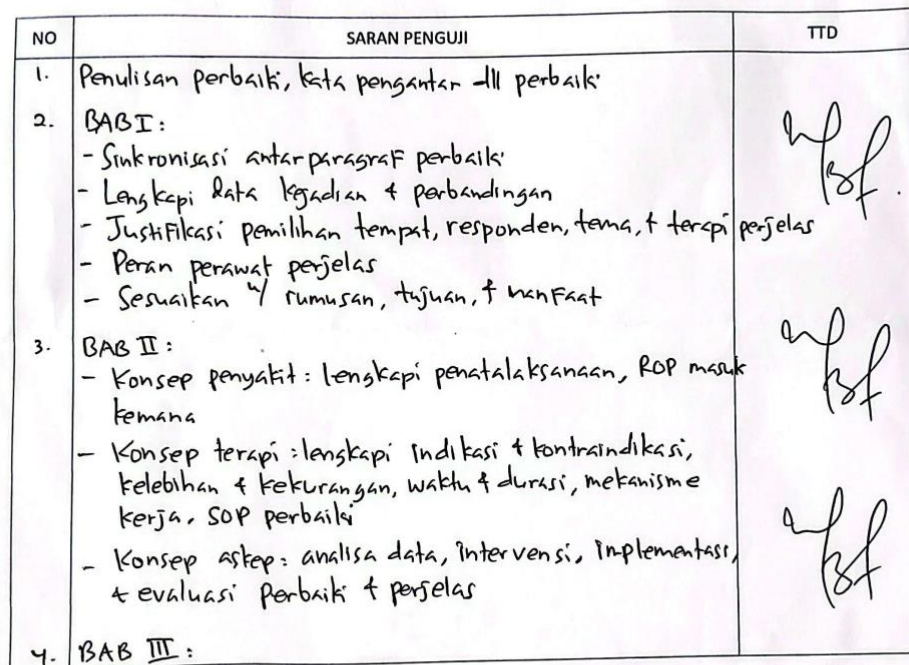 NO SARAN PENGUJI TTD
1. Penulisan perbaiki, kata pengantar dll perbaiki
2. BAB I :
- Sinkronisasi antar paragraf perbaiki
- Lengkapi data kejadian & perbandingan
- Justifikasi pemilihan tempat, responden, tema, & terapi perjelas
- Peran perawat perjelas
- Sesuaikan w/ rumusan, tujuan, & manfaat
3. BAB II :
- Konsep penyakit : lengkapi penatalaksanaan, ROP masuk
kemana
- Konsep terapi : lengkapi indikasi & kontraindikasi,
kelebihan & kekurangan, waktu & durasi, mekanisme
kerja, SOP perbaiki
- Konsep askep : analisa data, intervensi, implementasi,
& evaluasi perbaiki & perjelas
4. BAB III :